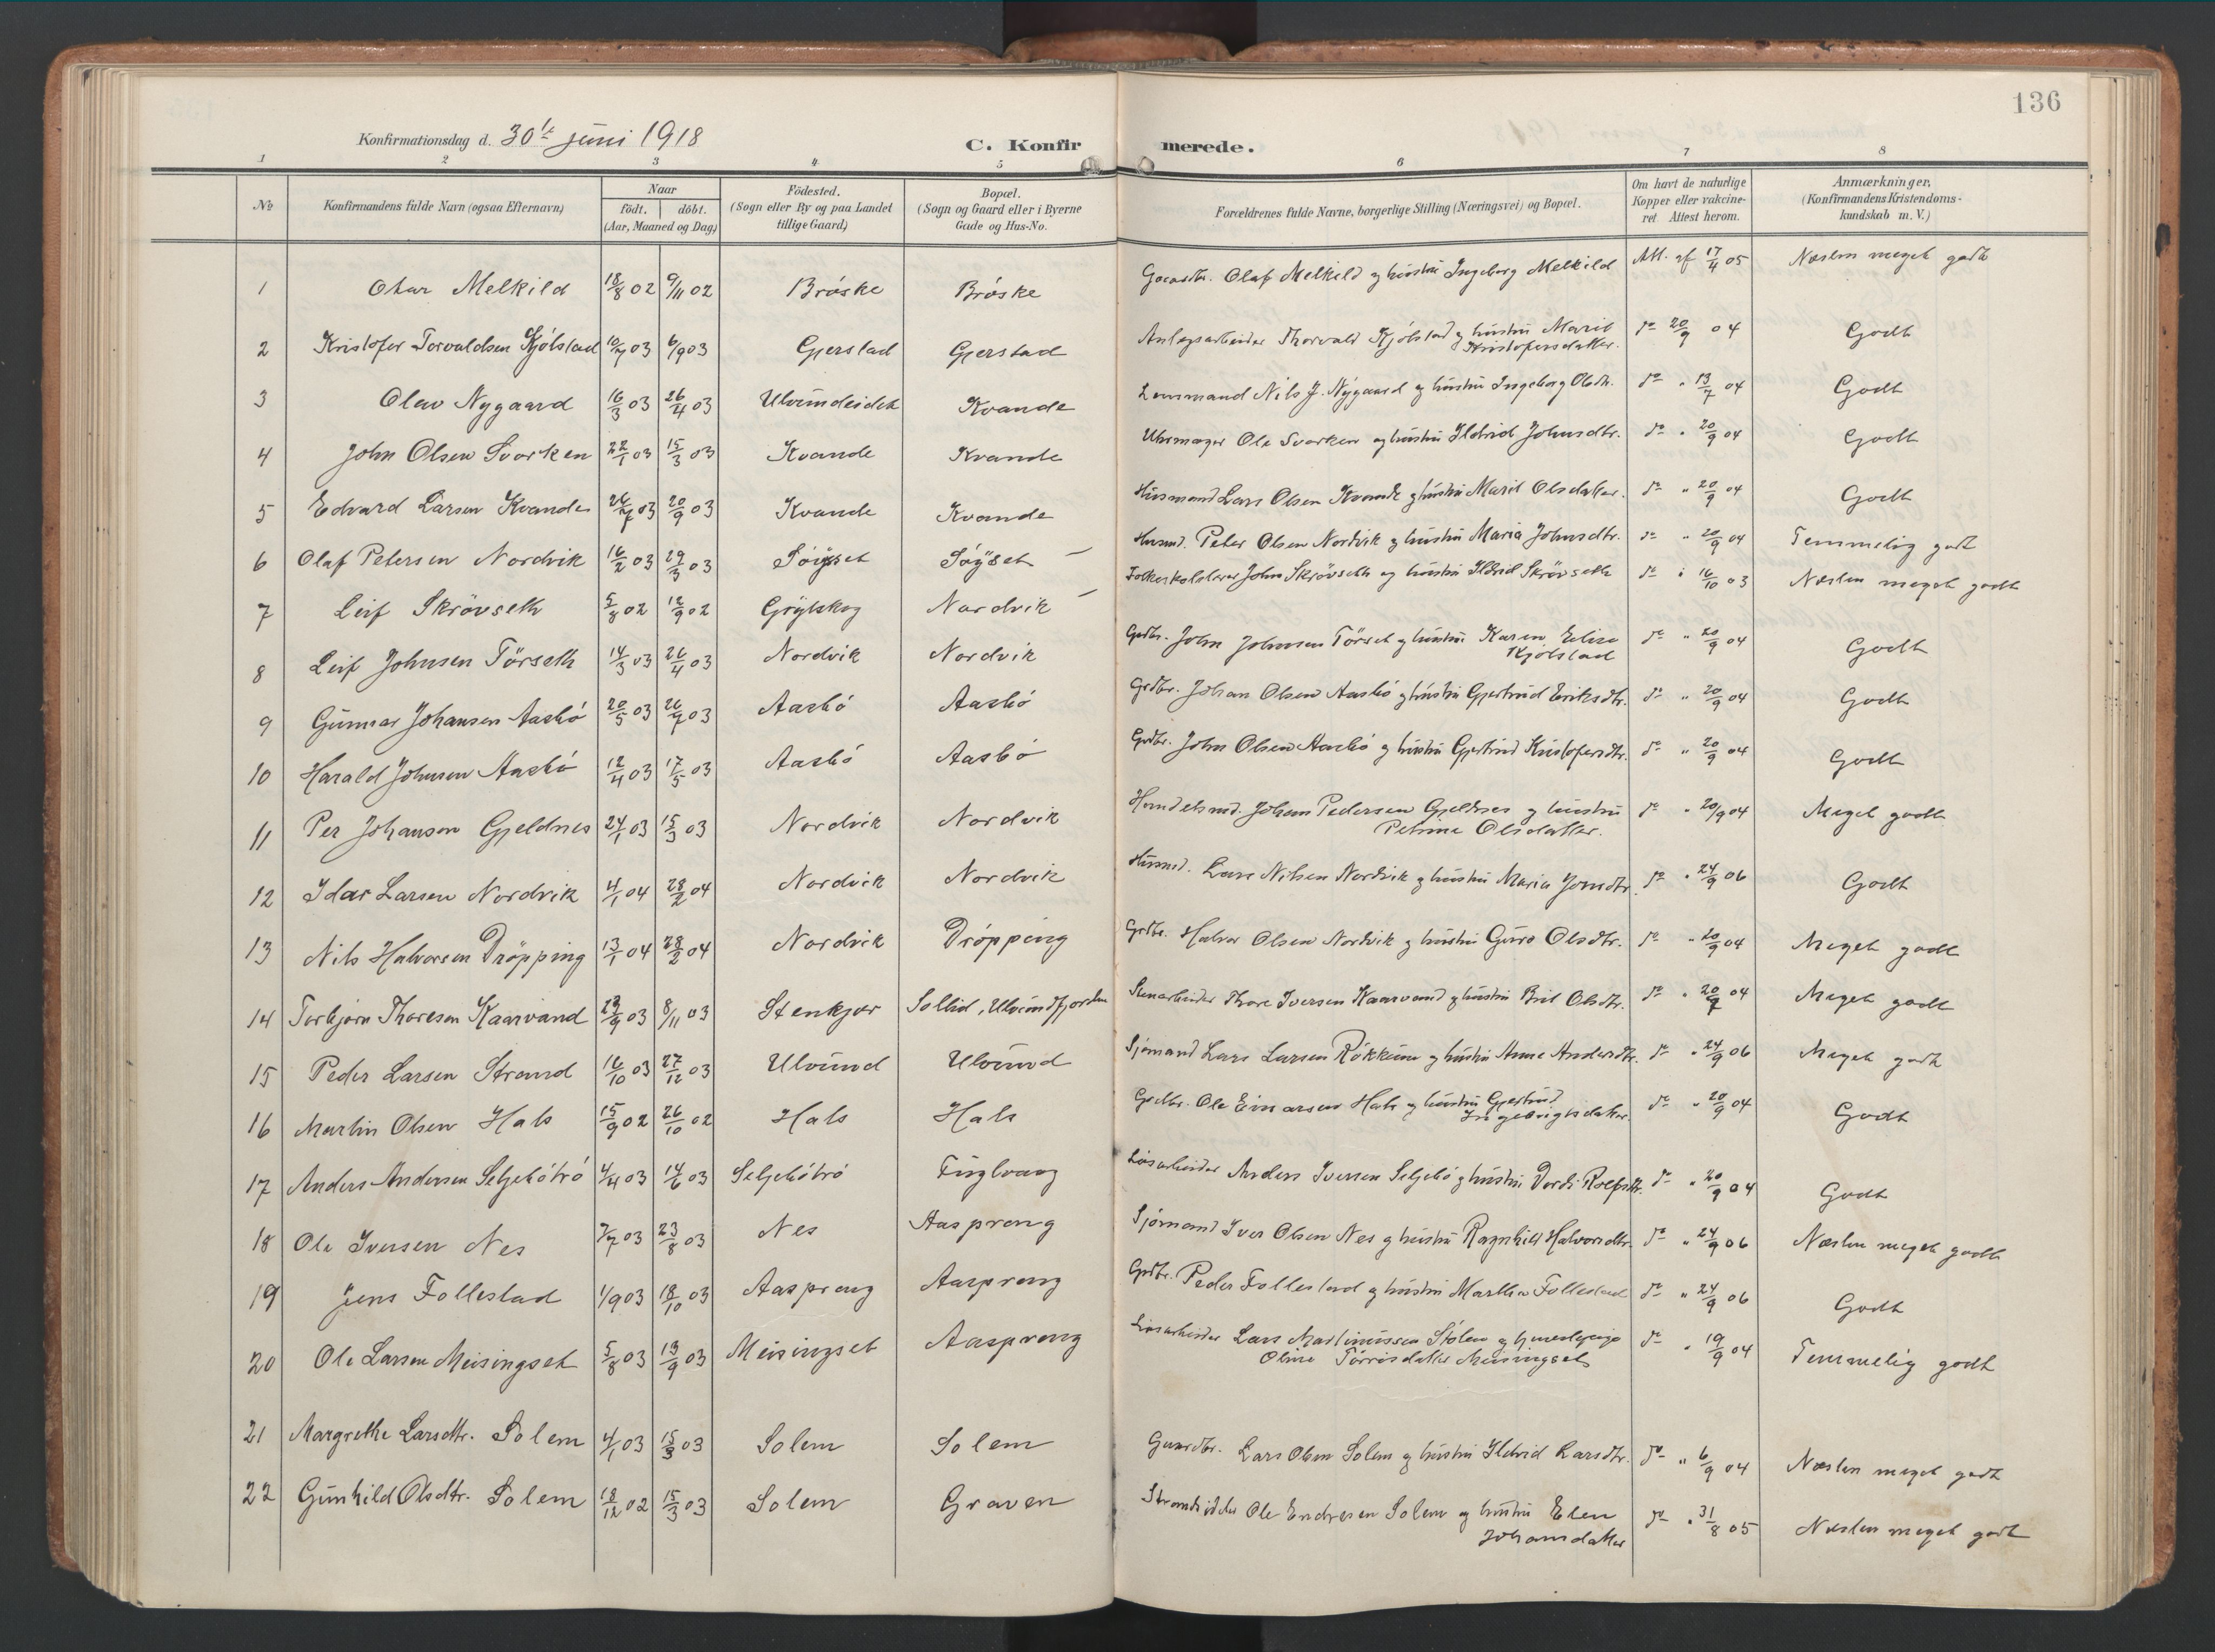 136
Konfirmationsdag d. 30te juni 1918
C. Konfirmerede.
1 2 3 4 5 6 7 8
No
Konfirmandens fulde Navn (ogsaa Efternavn)
Naar
födt. döbt.
(Aar, Maaned og Dag)
Födested.
(Sogn eller By og paa Landet
tillige Gaard)
Bopæl.
(Sogn og Gaard eller i Byerne
Gade og Hus-No.
Forældrenes fulde Navne, borgerlige Stilling (Næringsvei) og Bopæl.
Om havt de naturlige
Kopper eller vakcine-
ret. Attest herom.
Anmærkninger,
(Konfirmandens Kristendoms-
kundskab m. V.)
1 Otar Melkild 18/8 02 9/11 02 Bröske Bröske Gaardbr. Olaf Melkild og hustru Ingeborg Melkild Att. af 17/4 05 Næsten meget godt
2 Kristofer Torvaldsen Kjölstad 10/7 03 6/9 03 Gjerstad Gjerstad Anlægsarbeider Thorvald Kjölstad og hustru Marit Kristofersdatter. do 20/9 04 Godt
3 Olav Nygaard 16/3 03 26/4 03 Ulvundeidet Kvande Lensmand Nils J. Nygaard og hustru Ingeborg Olsdtr. do " 13/7 04 Godt
4 John Olsen Svorken 22/1 03 15/3 03 Kvande Kvande Uhrmager Ole Svorken og hustru Ildrid Johnsdtr. do " 20/9 04 Godt
5 Edvard Larsen Kvande 26/7 03 20/9 03 Kvande Kvande Husmand Lars Olsen Kvande og hustru Marit Olsdatter. do " 20/9 04 Godt
6 Olaf Petersen Nordvik 16/2 03 29/3 03 Söyset Söyset Husmd. Peter Olsen Nordvik og hustru Maria Johnsdtr. do " 20/9 04 Temmelig godt
7 Leif Skrövseth 5/8 02 12/9 02 Grytskog Nordvik Folkeskolelærer John Skrövseth og hustru Ildrid Skrövseth do " 16/10 03 Næsten meget godt
8 Leif Johnsen Törseth 14/3 03 26/4 03 Nordvik Nordvik Grdbr. John Johnsen Törset og hustru Karen Elise Kjölstad do " 20/9 04 Godt
9 Gunnar Johansen Aasbö 20/5 03 26/7 03 Aasbö Aasbö Grdbr. Johan Olsen Aasbö og hustru Gjertrud Eriksdtr. do " 20/9 04 Godt
10 Harald Johnsen Aasbö 12/4 03 17/5 03 Aasbö Aasbö Grdbr. John Olsen Aasbö og hustru Gjertrud Kristofersdtr. do " 20/9 04 Godt
11 Per Johansen Gjeldnes 24/1 03 15/3 03 Nordvik Nordvik Handelsmd. Johan Pedersen Gjeldnes og hustru Petrine Olsdatter. do " 20/9 04 Meget godt
12 Idar Larsen Nordvik 4/1 04 28/2 04 Nordvik Nordvik Husmd. Lars Nilsen Nordvik og hustru Maria Jonsdtr. do " 24/9 06 Godt
13 Nils Halvorsen Dröpping 13/1 04 28/2 04 Nordvik Dröpping Grdbr. Halvor Olsen Nordvik og hustru Guro Olsdtr. do " 20/9 04 Meget godt
14 Torbjörn Thoresen Kaarvand 23/9 03 8/11 03 Stenkjær Sollid, Ulvundfjorden Stenarbeider Thore Iversen Kaarvand og hustru Brit Olsdtr. do " 20/9 04 Meget godt
15 Peder Larsen Strand 16/10 03 27/12 03 Ulvund Ulvund Sjömand Lars Larsen Rökkum og hustru Anne Andersdtr. do " 24/9 06 Meget godt
16 Martin Olsen Hals 15/9 02 26/10 02 Hals Hals Grdbr. Ole Einarsen Hals og hustru Gjertrud Ingebrigtsdatter. do " 20/9 04 Godt
17 Anders Andersen Seljebötrö 4/4 03 14/6 03 Seljebötrö Fuglvaag Lösarbeider Anders Iversen Seljebö og hustru Dordi Rolfsdtr. do " 20/9 04 Godt
18 Ole Iversen Nes 7/7 03 23/8 03 Nes Aasprong Sjömand Iver Olsen Nes og hustru Ragnhild Halvorsdtr. do " 24/9 06 Næsten meget godt
19 Jens Follestad 1/9 03 18/10 03 Aasprong Aasprong Grdbr. Peder Follestad og hustru Marthe Follestad do " 24/9 06 Godt
20 Ole Larsen Meisingset 5/8 03 13/9 03 Meisingset Aasprong Lösarbeider Lars Martinussen Stölen og Oline Törrisdatter Meisingset do " 19/9 04 Temmelig godt
21 Margrethe Larsdtr. Solem 4/1 03 15/3 03 Solem Solem Gaardbr. Lars Olsen Solem og hustru Ildrid Larsdtr. do " 6/9 04 Næsten meget godt
22 Gunhild Olsdtr. Solem 18/12 02 15/3 03 Solem Graven Strandsidder Ole Endresen Solem og hustru Elen Johansdatter do " 31/8 05 Næsten meget godt